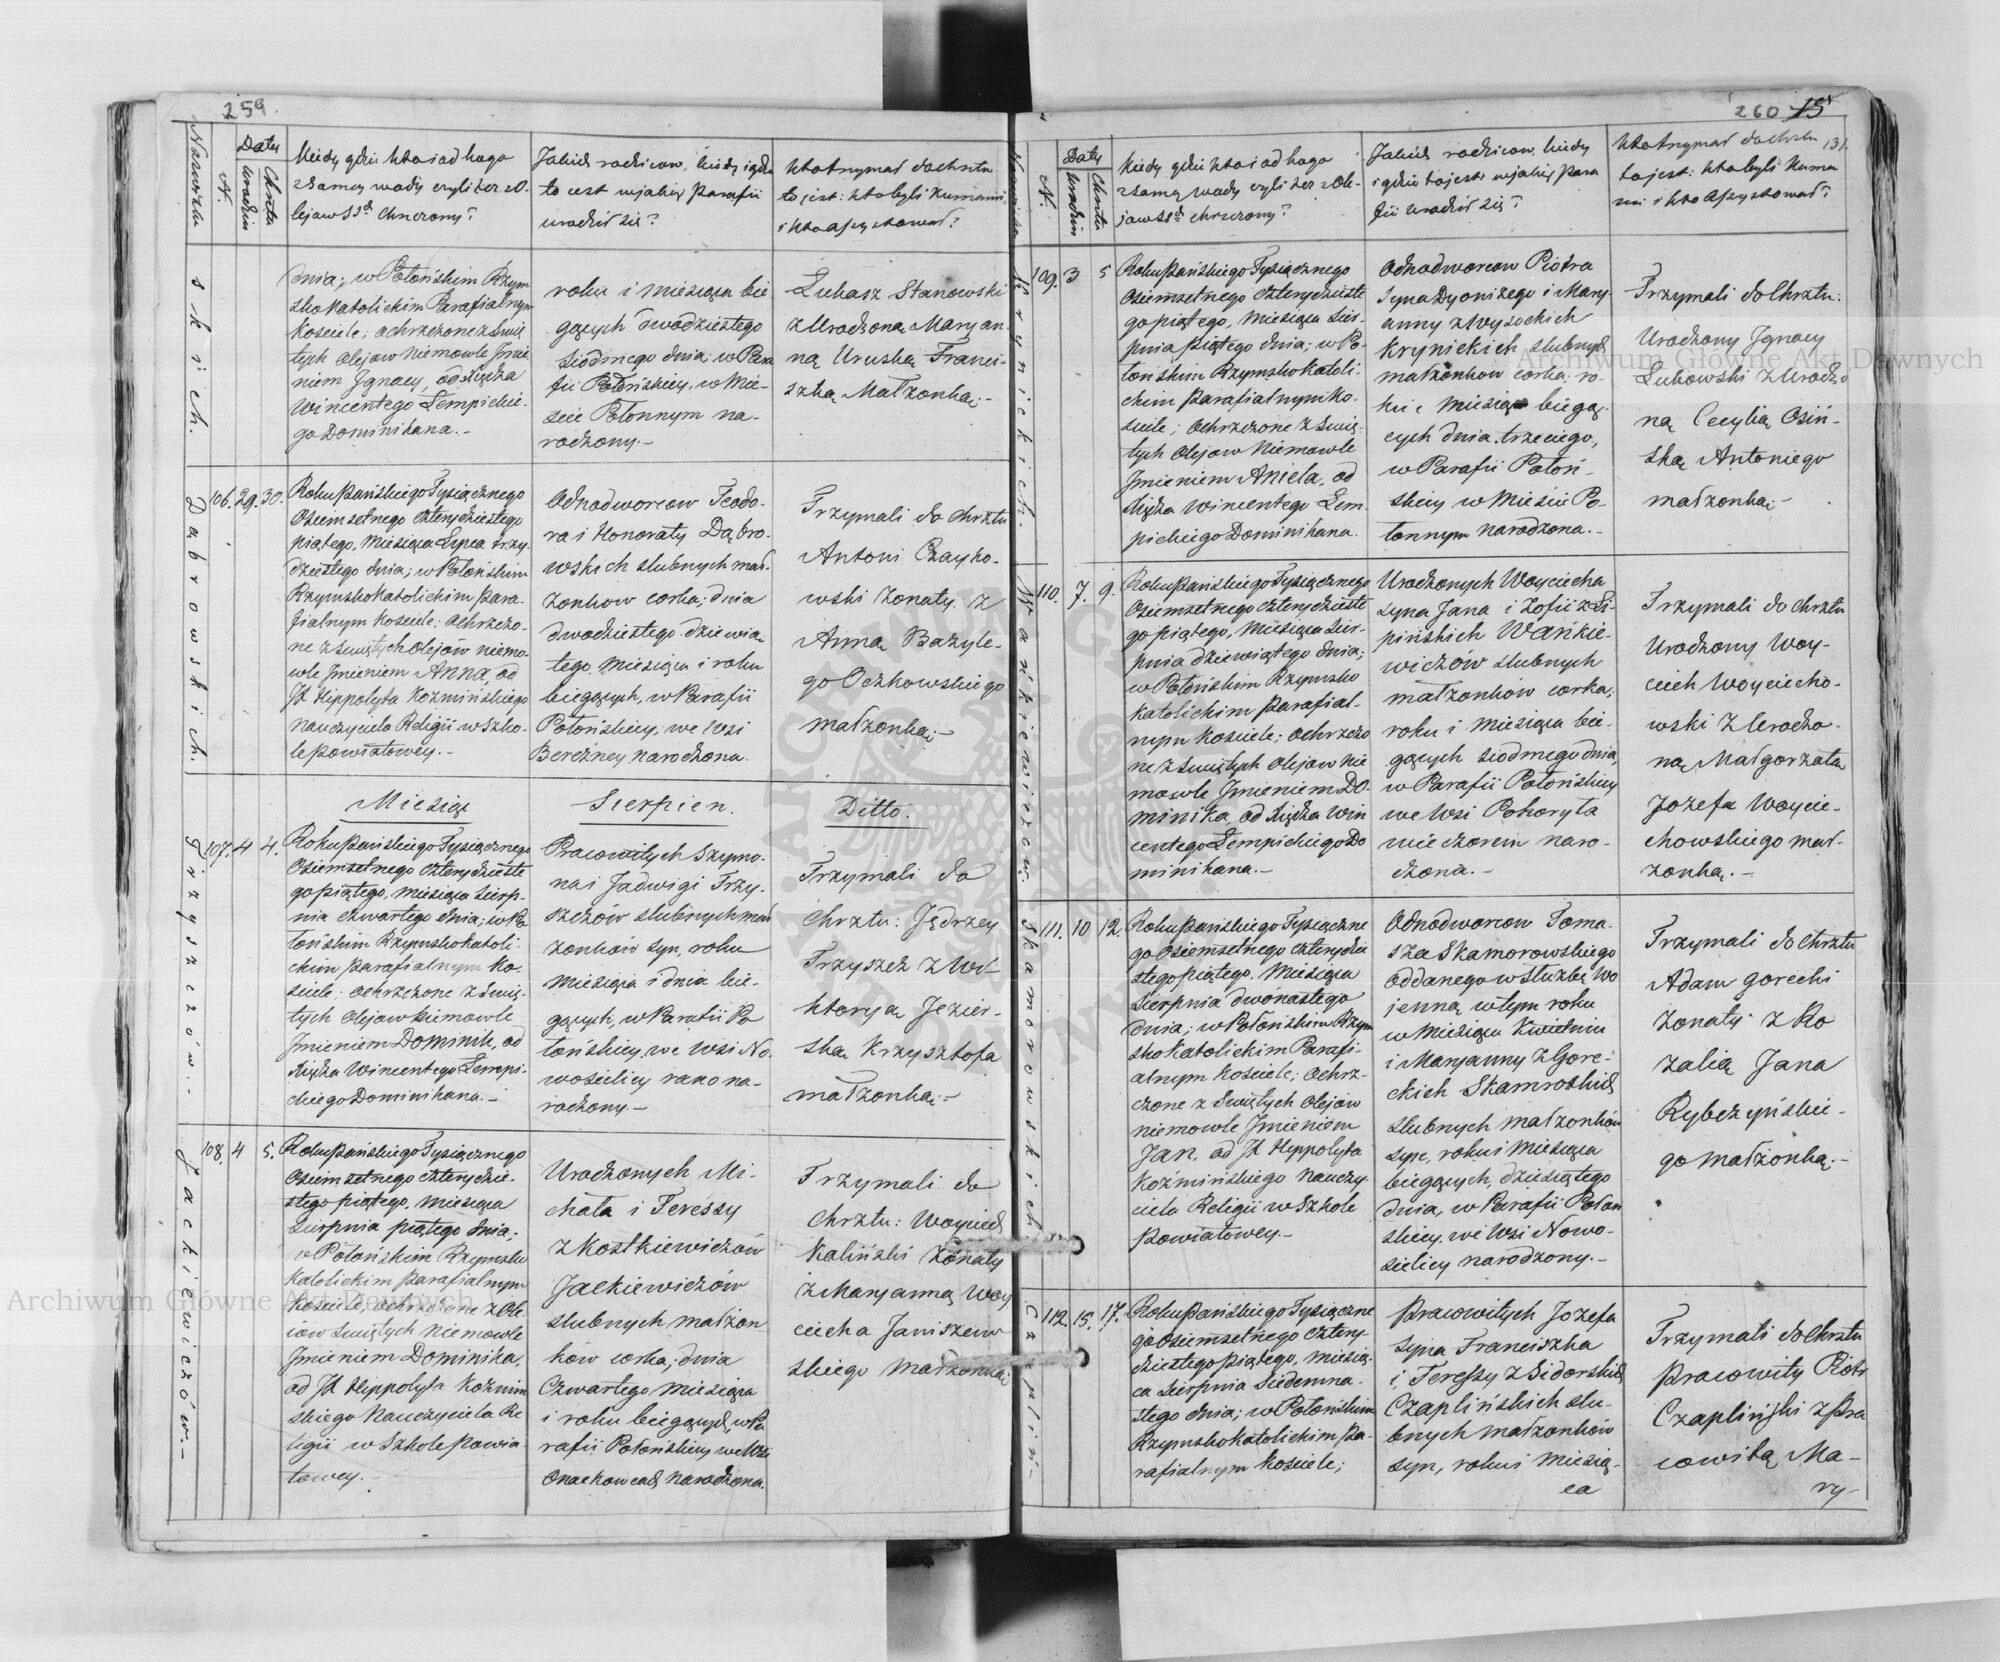 259.
Nazwisko
N.
Daty
urodzin
Chrztu
Kiedy gdzie kto i od kogo
z samey wody czyli tez z O-
lejow SSch chrzczony?
Jakich rodzicow, kiedy i gdzie
to iest wjakiey parafii
urodził się?
kto trzymał dochrztu
to iest: kto byli kumami,
i kto assystował?
skich.
dnia; w Połońskim Rzym
sko Katolickim Parafialnym
Kościele; ochrzczone z Swię
tych Olejow niemowle Jmie
niem Jgnacy, od Xiędza
Wincentego Łempickie-
go Dominikana.-
roku i miesiąca bie
gących dwódziestego
siódmego dnia; w Para
fii Połońskiey, w Mie-
scie Połonnym na-
rodzony.-
Łukasz Stanowski
z Urodzoną Maryan
ną Uruską Franci-
szka Małżonką;-
Dąbrowskich.
106. 29. 30.
Roku Pańskiego Tysiącznego
Osiemsetnego czterydziestego
piątego, Miesiąca Lipca trzy-
dziestego dnia; w Połońskim
Rzymsko Katolickim Para-
fialnym Kosciele; ochrzczo-
ne z Swiętych Olejów niemo-
wle Jmieniem Anna, od
JX Hippolyta Kozmińskiego
nauczyciela Religii w Szko-
le powiatowey.-
Odnodworcow Teodo-
ra i Honoraty Dąbro-
wskich slubnych mał-
żonkow corka; dnia
dwodziestego dziewią
tego miesiąca i roku
biegących, w Parafii
Połońskiey, we wsi
Bereźney narodzona.
Trzymali do chrztu
Antoni Czayko-
wski żonaty z
Anną Bazyle-
go Oczkowskiego
małżonką;-
Miesiąc Sierpien. Ditto.
Trzyszczów.
107. 4 4.
Roku Pańskiego Tysiącznego
Osiemsetnego czterydzieste
go piątego, miesiąca Sierp-
nia czwartego dnia; w Po
łońskim Rzymsko Katoli-
ckim parafialnym Ko-
sciele; ochrzczone z Swię-
tych Olejow niemowle
Jmieniem Dominik, od
Xiędza Wincentego Łempi-
ckiego Dominikana.-
Pracowitych Szymo-
na i Jadwigi Trzy-
szczów slubnych mał
żonków syn, roku
miesiąca i dnia bie-
gących, w Parafii Po
łońskiey, we wsi No-
wosielicy rano na-
rodzony.-
Trzymali do
Chrztu: Jędrzey
Trzyszcz z Wi-
ktoryą Jezier-
ską Krzysztofa
małżonką;-
Jackiewiczów.-
108. 4 5.
Roku Pańskiego Tysiącznego
Osiemsetnego czterydzie-
stego piątego, miesiąca
Sierpnia piątego dnia;
w Połońskim Rzymsko
Katolickim parafialnym
Kosciele, ochrzczone z Ole
iow Swiętych niemowle
Jmieniem Dominika,
od JX Hippolyta Kozmin
skiego Nauczyciela Re
ligii w Szkole powia-
towey.-
Urodzonych Mi-
chała i Teressy
z Kostkiewiczów
Jackiewiczów
slubnych małżon
ków corka; dnia
Czwartego miesiąca
i roku biegących, w Pa
rafii Połońskiey we wsi
Onackowcach narodzona.
Trzymali do
Chrztu: Woyciech
Kaliński żonaty
z Maryanną Woy
ciecha Janiszew
skiego małżonką
260 15
131.
N.
Daty
urodzin
Chrztu
Kiedy gdzie kto i od kogo
z samey wody czyli tez z Ole-
jow SSch chrzczony?
Jakich rodzicow, kiedy
i gdzie to jest wjakiey para
fii urodził się?
kto trzymał do chrztu
to jest: kto byli kuma
mi i kto assystował?
Krynickich.
109. 3 5
Roku Pańskiego Tysiącznego
Osiemsetnego czterydzieste
go piątego, miesiąca Sier-
pnia piątego dnia; w Po-
łonskim Rzymsko Katoli-
ckim parafialnym Ko-
sciele; ochrzczone z Swię-
tych Olejow niemowle
Jmieniem Aniela, od
Xiędza Wincentego Łem
pickiego Dominikana.
Odnodworcow Piotra
syna Dyonizego i Mary-
anny z Wysockich
Krynickich slubnych
małżonkow corka; ro-
ku i miesiąca biegą-
cych dnia trzeciego,
w Parafii Połoń-
skiey w Miescie Po-
łonnym narodzona.-
Trzymali do Chrztu:
Urodzony Jgnacy
Łukowski z Urodzo
ną Cecylią Osiń-
ską Antoniego
małżonką;-
Wańkiewiczów.
110. 7. 9.
Roku Pańskiego Tysiącznego
Osiemsetnego czterydzieste
go piątego, Miesiąca Sier-
pnia dziewiątego dnia;
w Połońskim Rzymsko
Katolickim Parafial-
nym Kosciele; ochrzczo
ne z Swiętych Olejow nie
mowle Jmieniem Do-
minika, od Xiędza Win
centego Łempickiego Do
minikana.-
Urodzonych Woyciecha
syna Jana i Zofii z Li-
pińskich Wańkie-
wiczów slubnych
małżonków corka;
roku i miesiąca bie-
gących siódmego dnia,
w Parafii Połońskiey
we wsi Poboryta
wieczorem naro-
dzona.-
Trzymali do chrztu
Urodzony Woy-
ciech Woyciecho-
wski z Urodzo-
ną Małgorzatą
Jozefa Woycie-
chowskiego mał-
żonką.-
Skamorowskich
111. 10 12.
Roku Pańskiego Tysiączne
go Osiemsetnego czterydzie
stego piątego, Miesiąca
Sierpnia dwónastego
dnia; w Połońskim Rzym
sko Katolickim Parafi-
alnym Kosciele; ochrz-
czone z Swiętych Olejów
niemowle Jmieniem
Jan, od JX Hippolyta
Koźmińskiego nauczy
ciela Religii w Szkole
powiatowey.-
Odnodworcow Toma-
sza Skamorowskiego
oddanego w służbę Wo
jenną w tym roku
w miesiącu Kwietniu
i Maryanny z Gore-
ckich Skamroskich
slubnych małżonków
syn, roku i miesiąca
biegących, dziesiątego
dnia, w Parafii Połon
skiey, we wsi Nowo-
sielicy narodzony.-
Trzymali do chrztu
Adam Gorecki
żonaty z Ro
zalią Jana
Rybczyńskie-
go małżonką;-
Czaplin-
112. 15. 17.
Roku Pańskiego Tysiączne
go Osiemsetnego cztery-
dziestego piątego, miesią-
ca Sierpnia Siedemna-
stego dnia; w Połońskim
Rzymsko Katolickim Pa-
rafialnym Kosciele;
Pracowitych Jozefa
syna Franciszka
i Teressy z Sidorskich
Czaplińskich slu-
bnych małżonków
syn, roku i miesią-
ca
Trzymali do Chrztu
Pracowity Piotr
Czapliński z Pra
cowitą Ma-
ry-
Archiwum Główne Akt Dawnych
Archiwum Główne Akt Dawnych